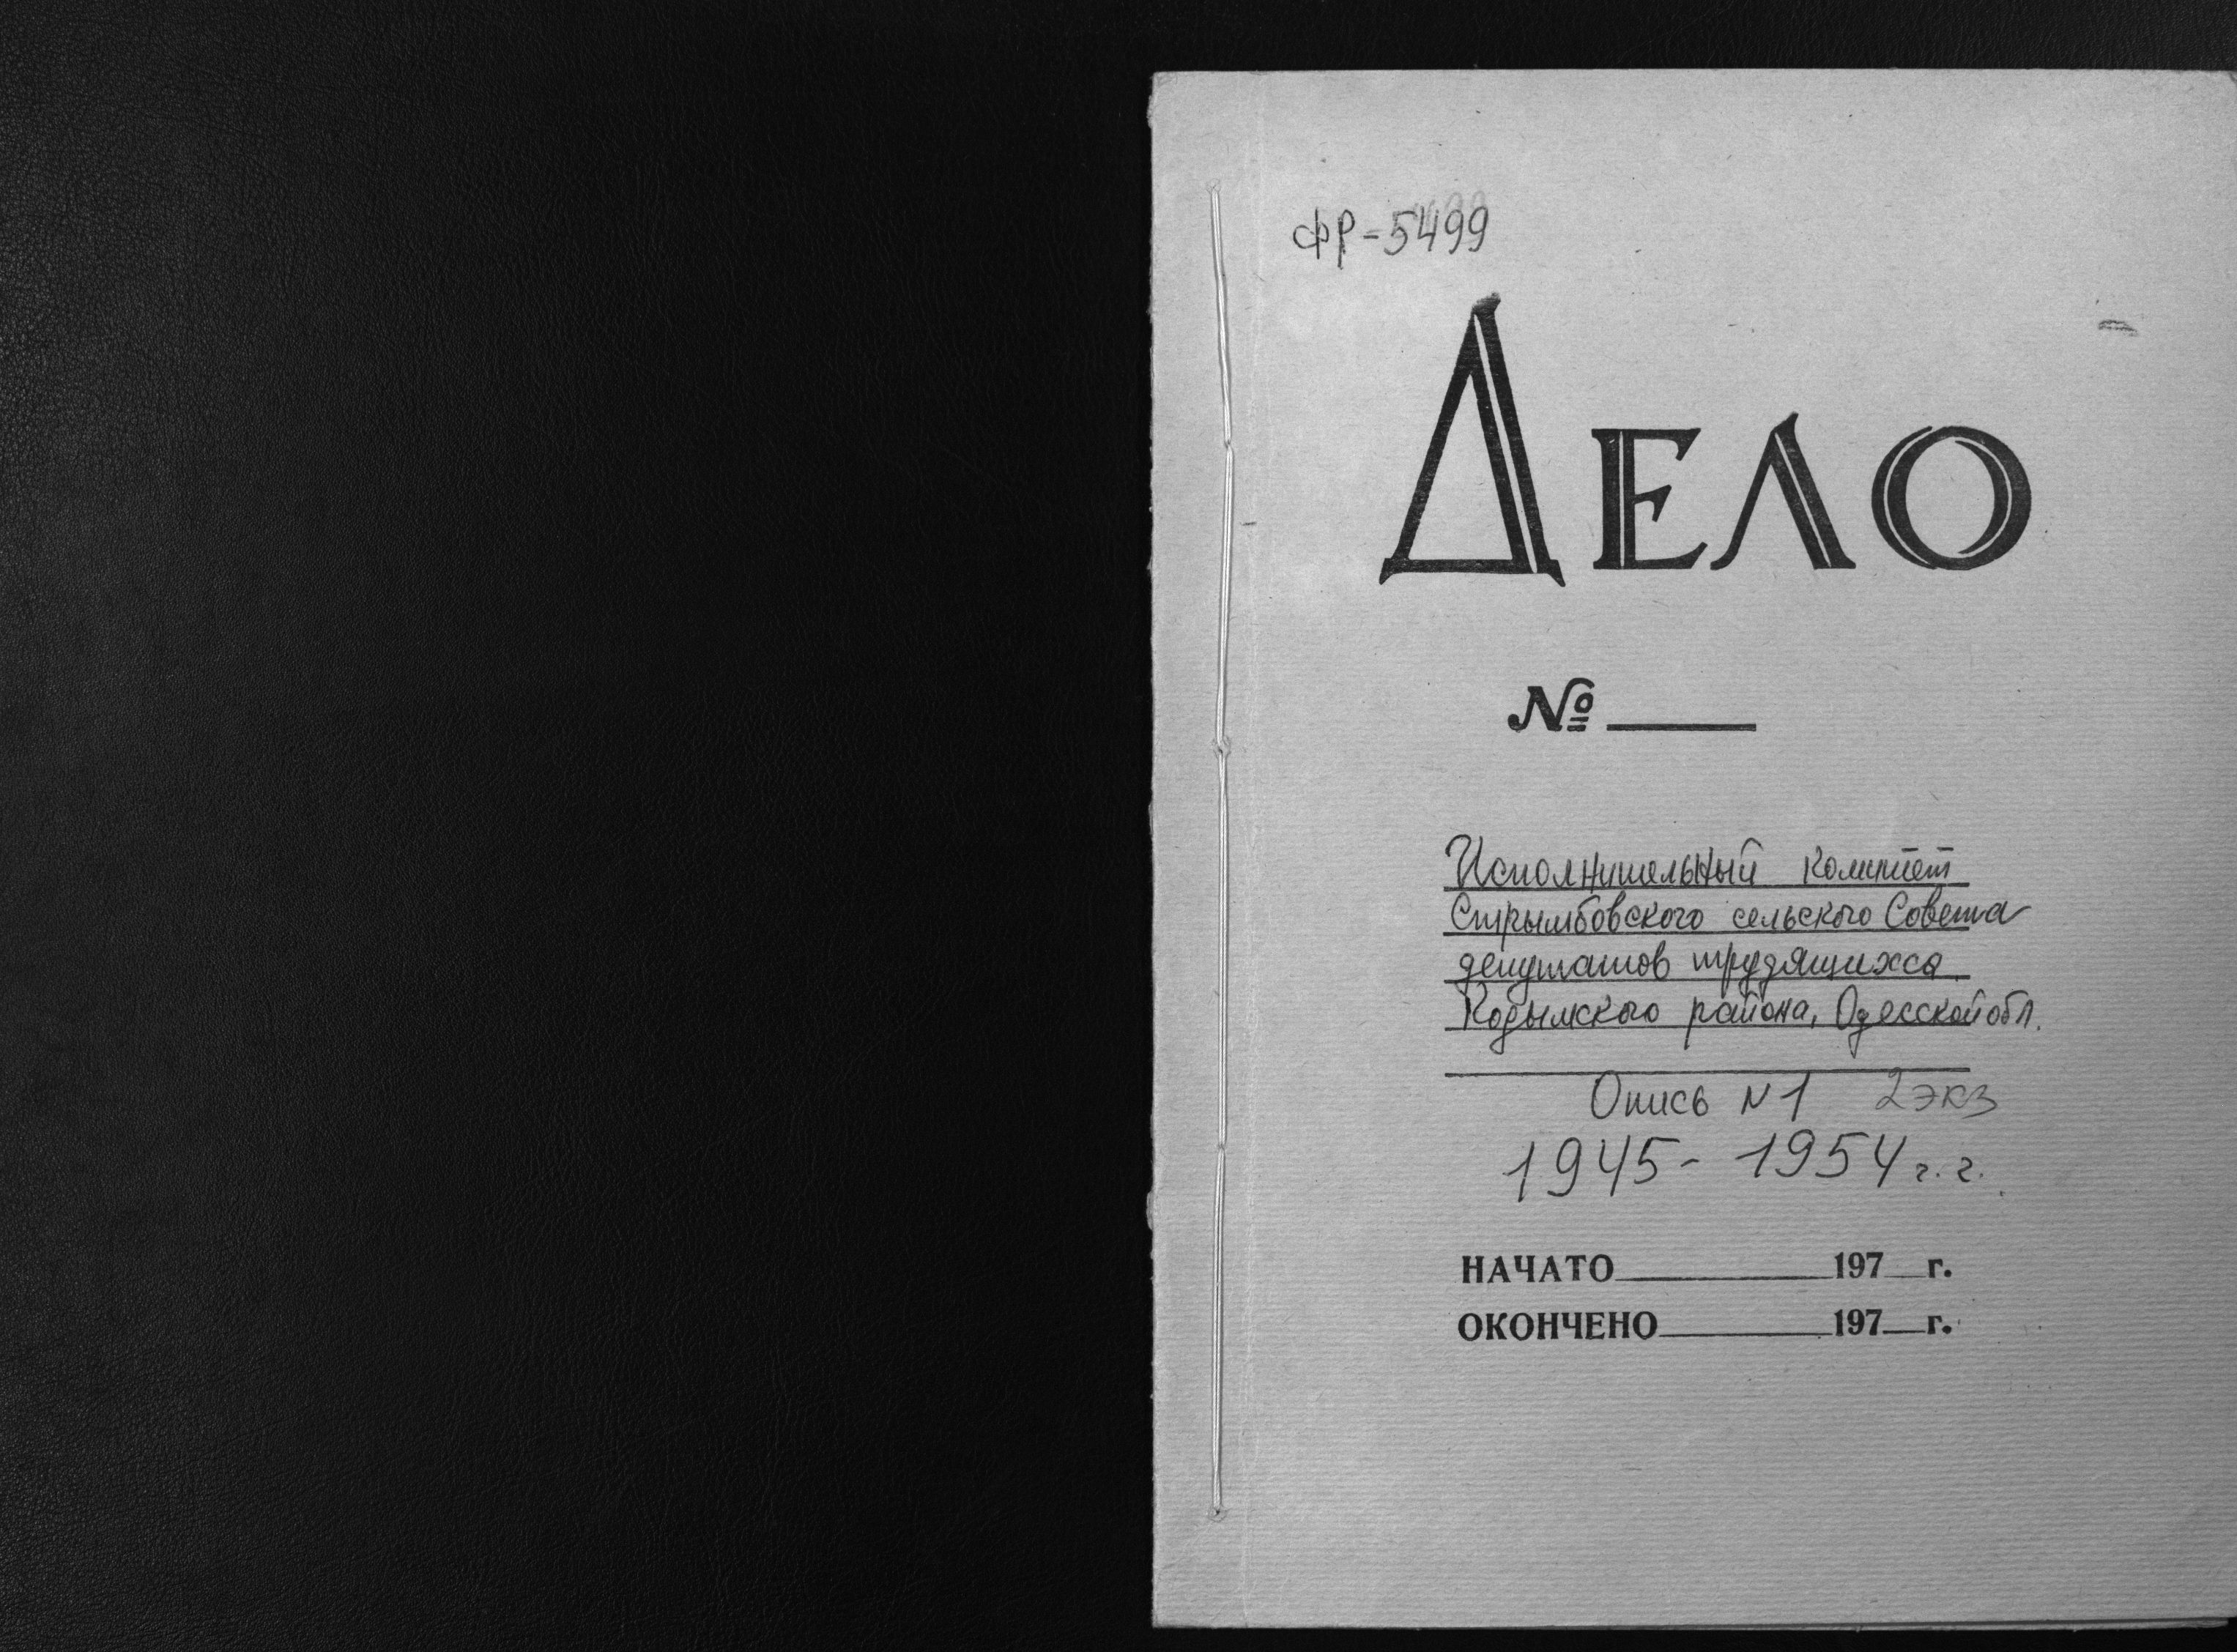 ФР-5499
ДЕЛО
№
Исполнительный Комитет
Стрымбовского сельского Совета
депутатов трудящихся
Кодымского района, Одесской обл.
Опись N1 2 экз
1945- 1954 г.г.
НАЧАТО 197 г.
ОКОНЧЕНО 197 г.